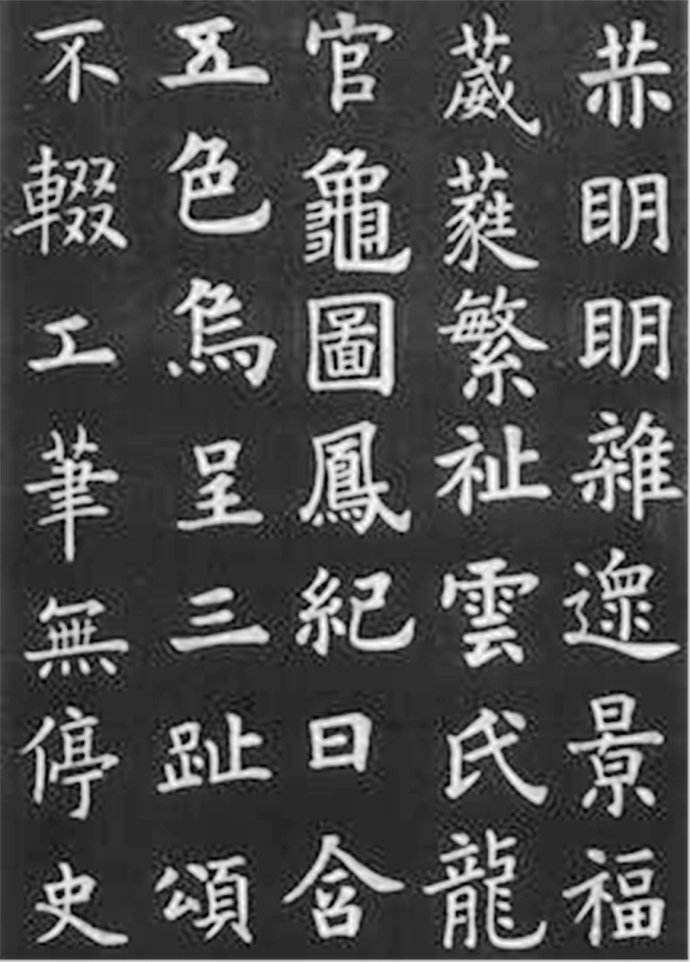 赤明明雜遝景福
葳蕤繁祉雲氏龍
官龜圖鳳紀日含
五色烏呈三趾頌
不輟工筆無停史